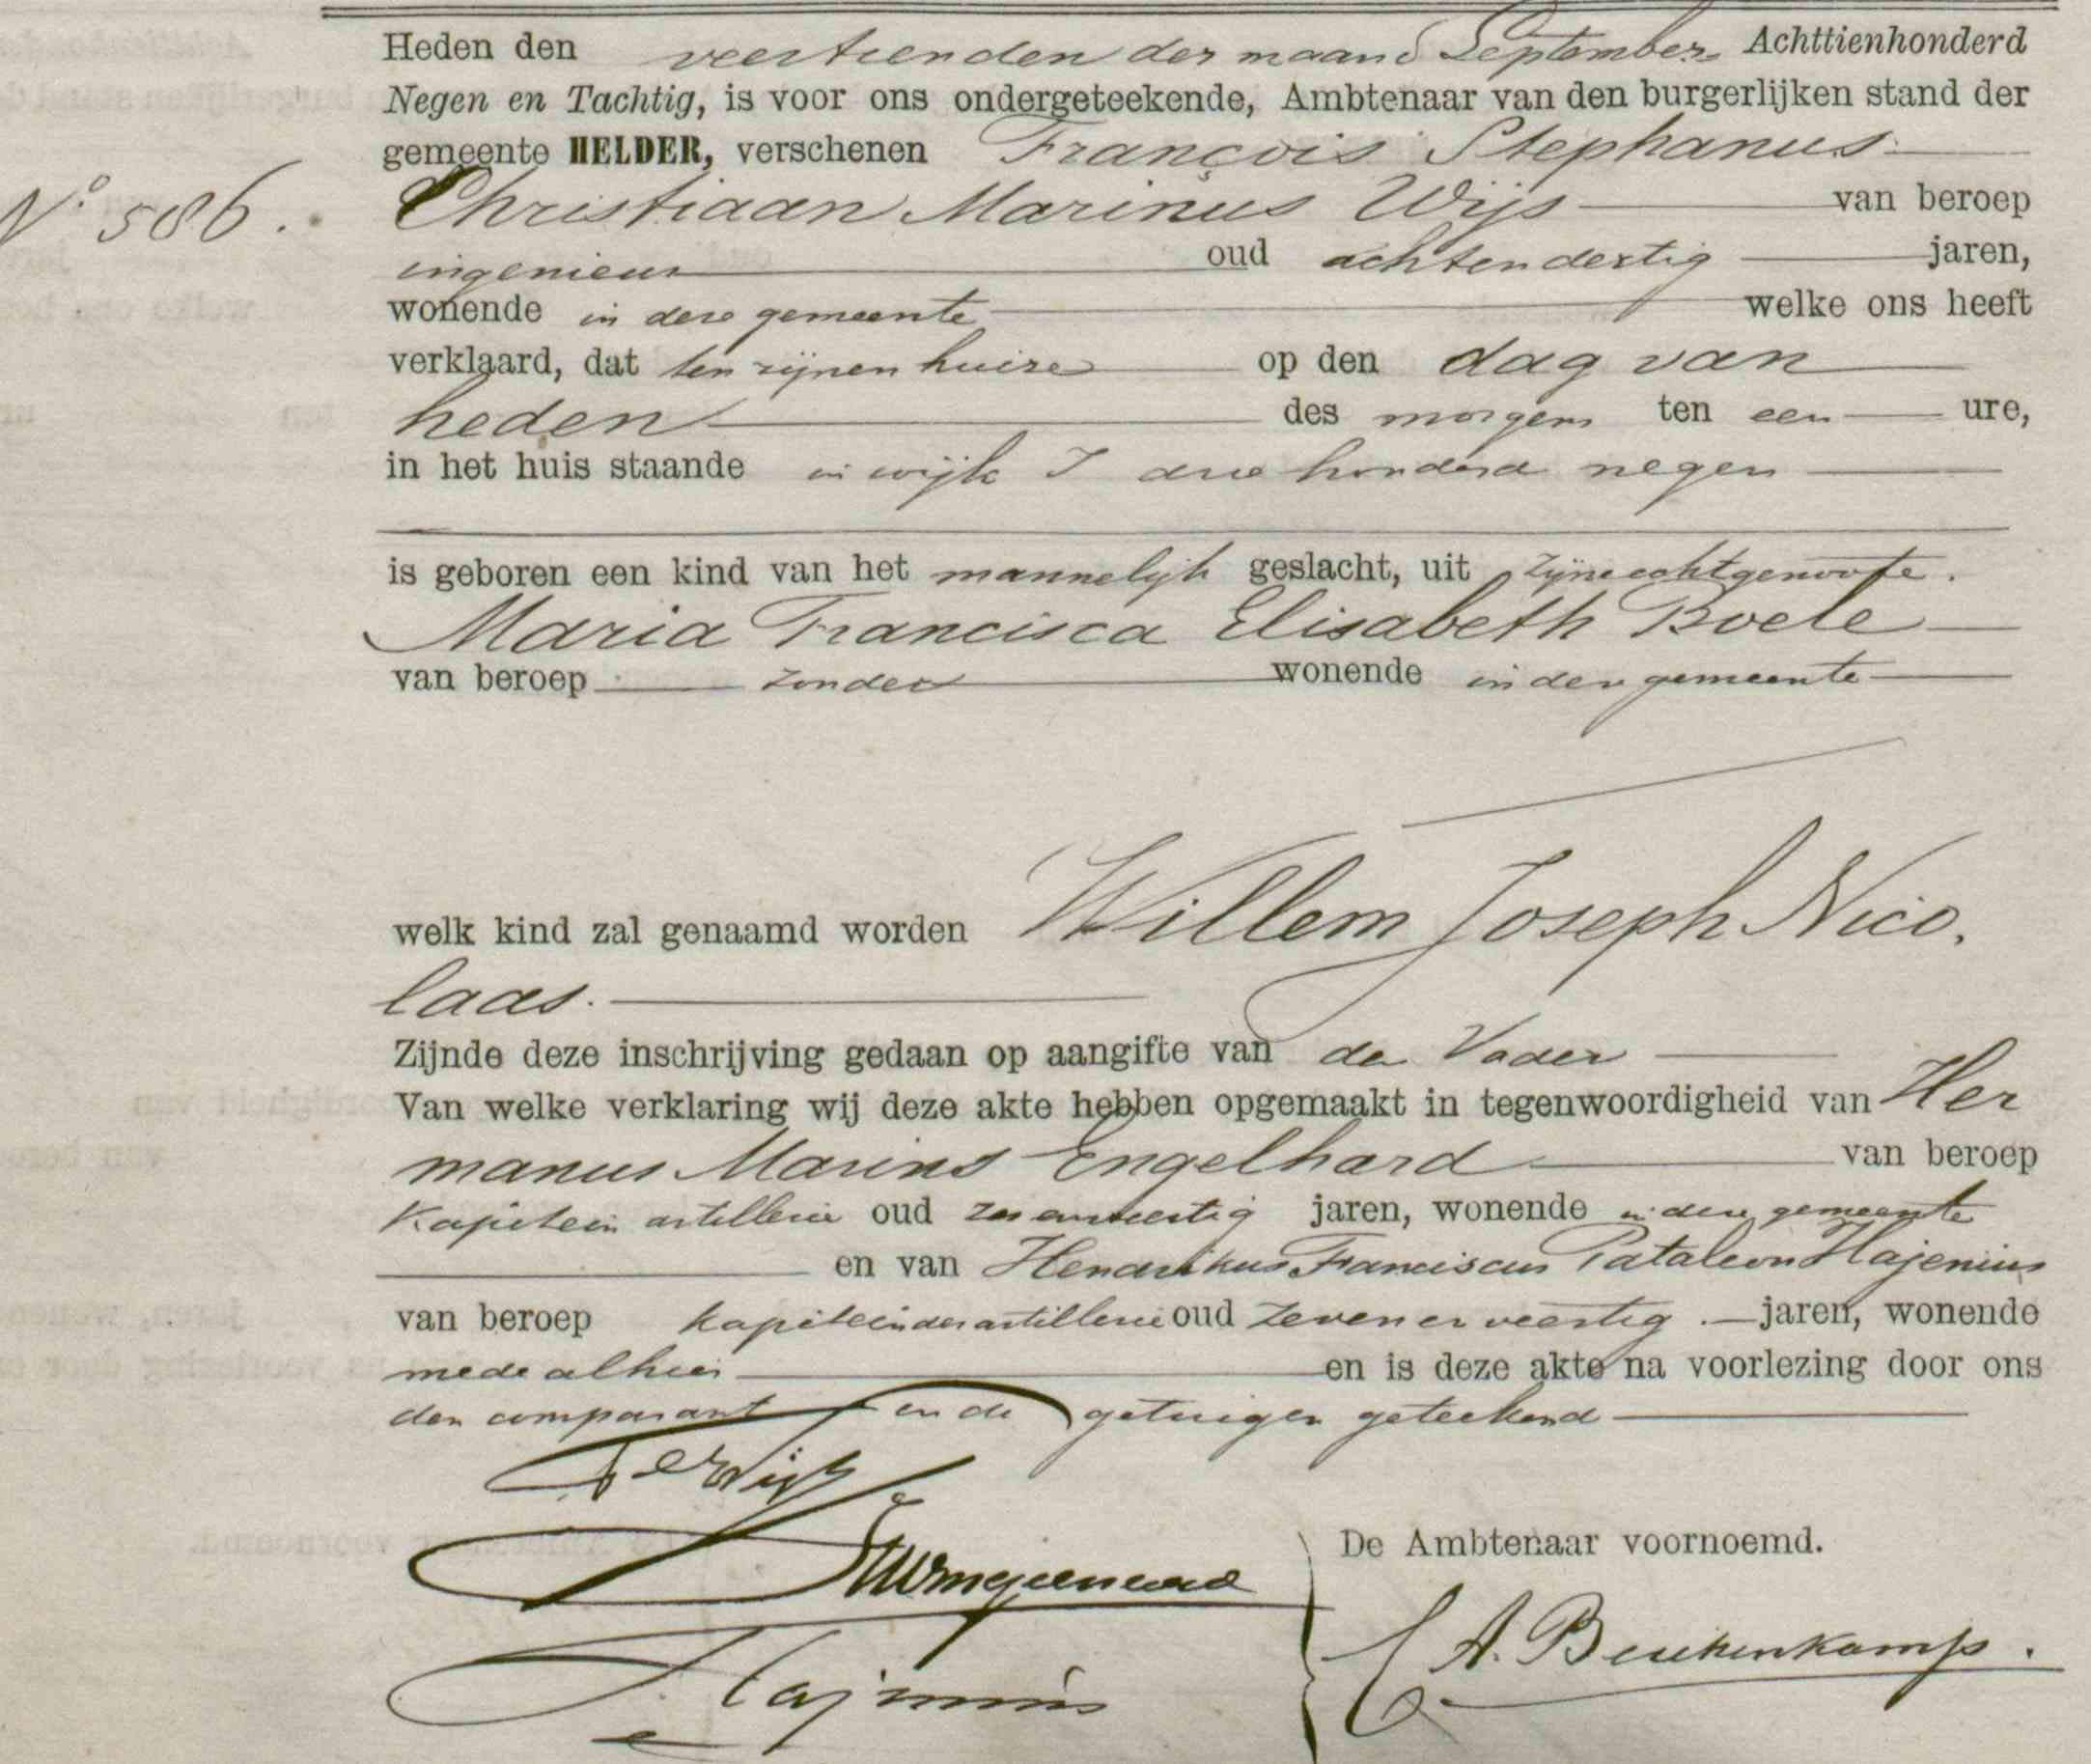 Heden den veertienden der maand September Achttienhonderd
Negen en Tachtig, is voor ons ondergeteekende, Ambtenaar van den burgerlijken stand der
gemeente HELDER, verschenen François Stephanus
No 586. Christiaan Marinus Wijs van beroep
ingenieur oud achtendertig jaren,
wonende in deze gemeente welke ons heeft
verklaard, dat ten zijnen huize op den dag van
heden des morgens ten een ure,
in het huis staande in wijk I drie honderd negen
is geboren een kind van het mannelijk geslacht, uit zijne echtgenoote.
Maria Francisca Elisabeth Boele
van beroep zonder wonende in deze gemeente
welk kind zal genaamd worden Willem Joseph Nico.
laas.
Zijnde deze inschrijving gedaan op aangifte van de Vader
Van welke verklaring wij deze akte hebben opgemaakt in tegenwoordigheid van Her
manus Marinus Engelhard van beroep
Kapitein artillerie oud zes en veertig jaren, wonende in deze gemeente
en van Hendrikus Franciscus Pataleon Hajenius
van beroep kapitein der artillerie oud zeven en veertig jaren, wonende
mede alhier en is deze akte na voorlezing door ons
den comparant en de getuigen geteekend
De Ambtenaar voornoemd.
Hajenius